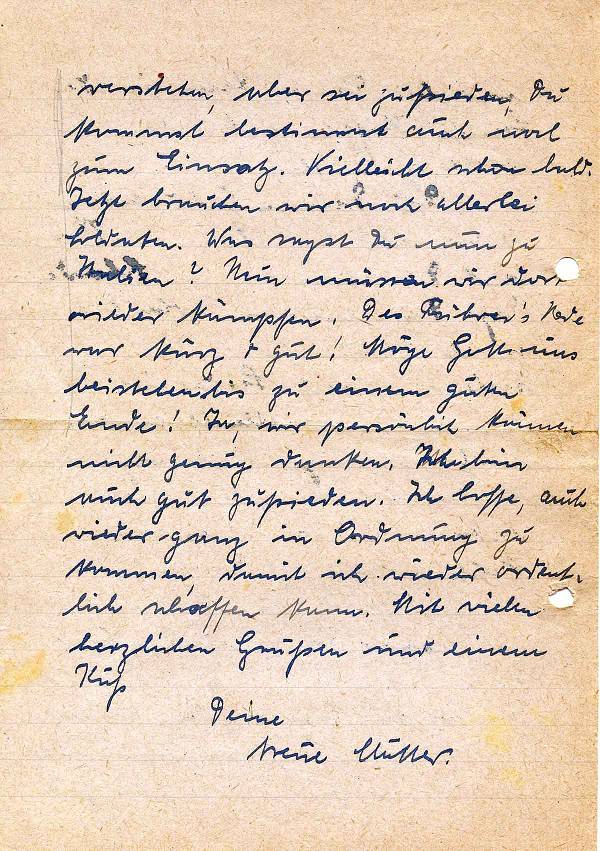 verstehen, aber sei zufrieden, Du
kommst bestimmt auch noch
zum Einsatz. Vielleicht schon bald.
Jetzt brauchen wir noch allerlei
Soldaten. Was sagst Du nun zu
Italien? Nun müssen wir dort
wieder kämpfen. Des Führer's Rede
war kurz & gut! Möge Gott uns
beistehen bis zu einem guten
Ende! Ja, wir persönlich können
nicht genug danken. Ich bin
auch gut zufrieden. Ich hoffe, auch
wieder ganz in Ordnung zu
kommen, damit ich wieder ordent-
lich schaffen kann. Mit vielen
herzlichen Grüßen und einem
Kuß
Deine
treue Mutter.